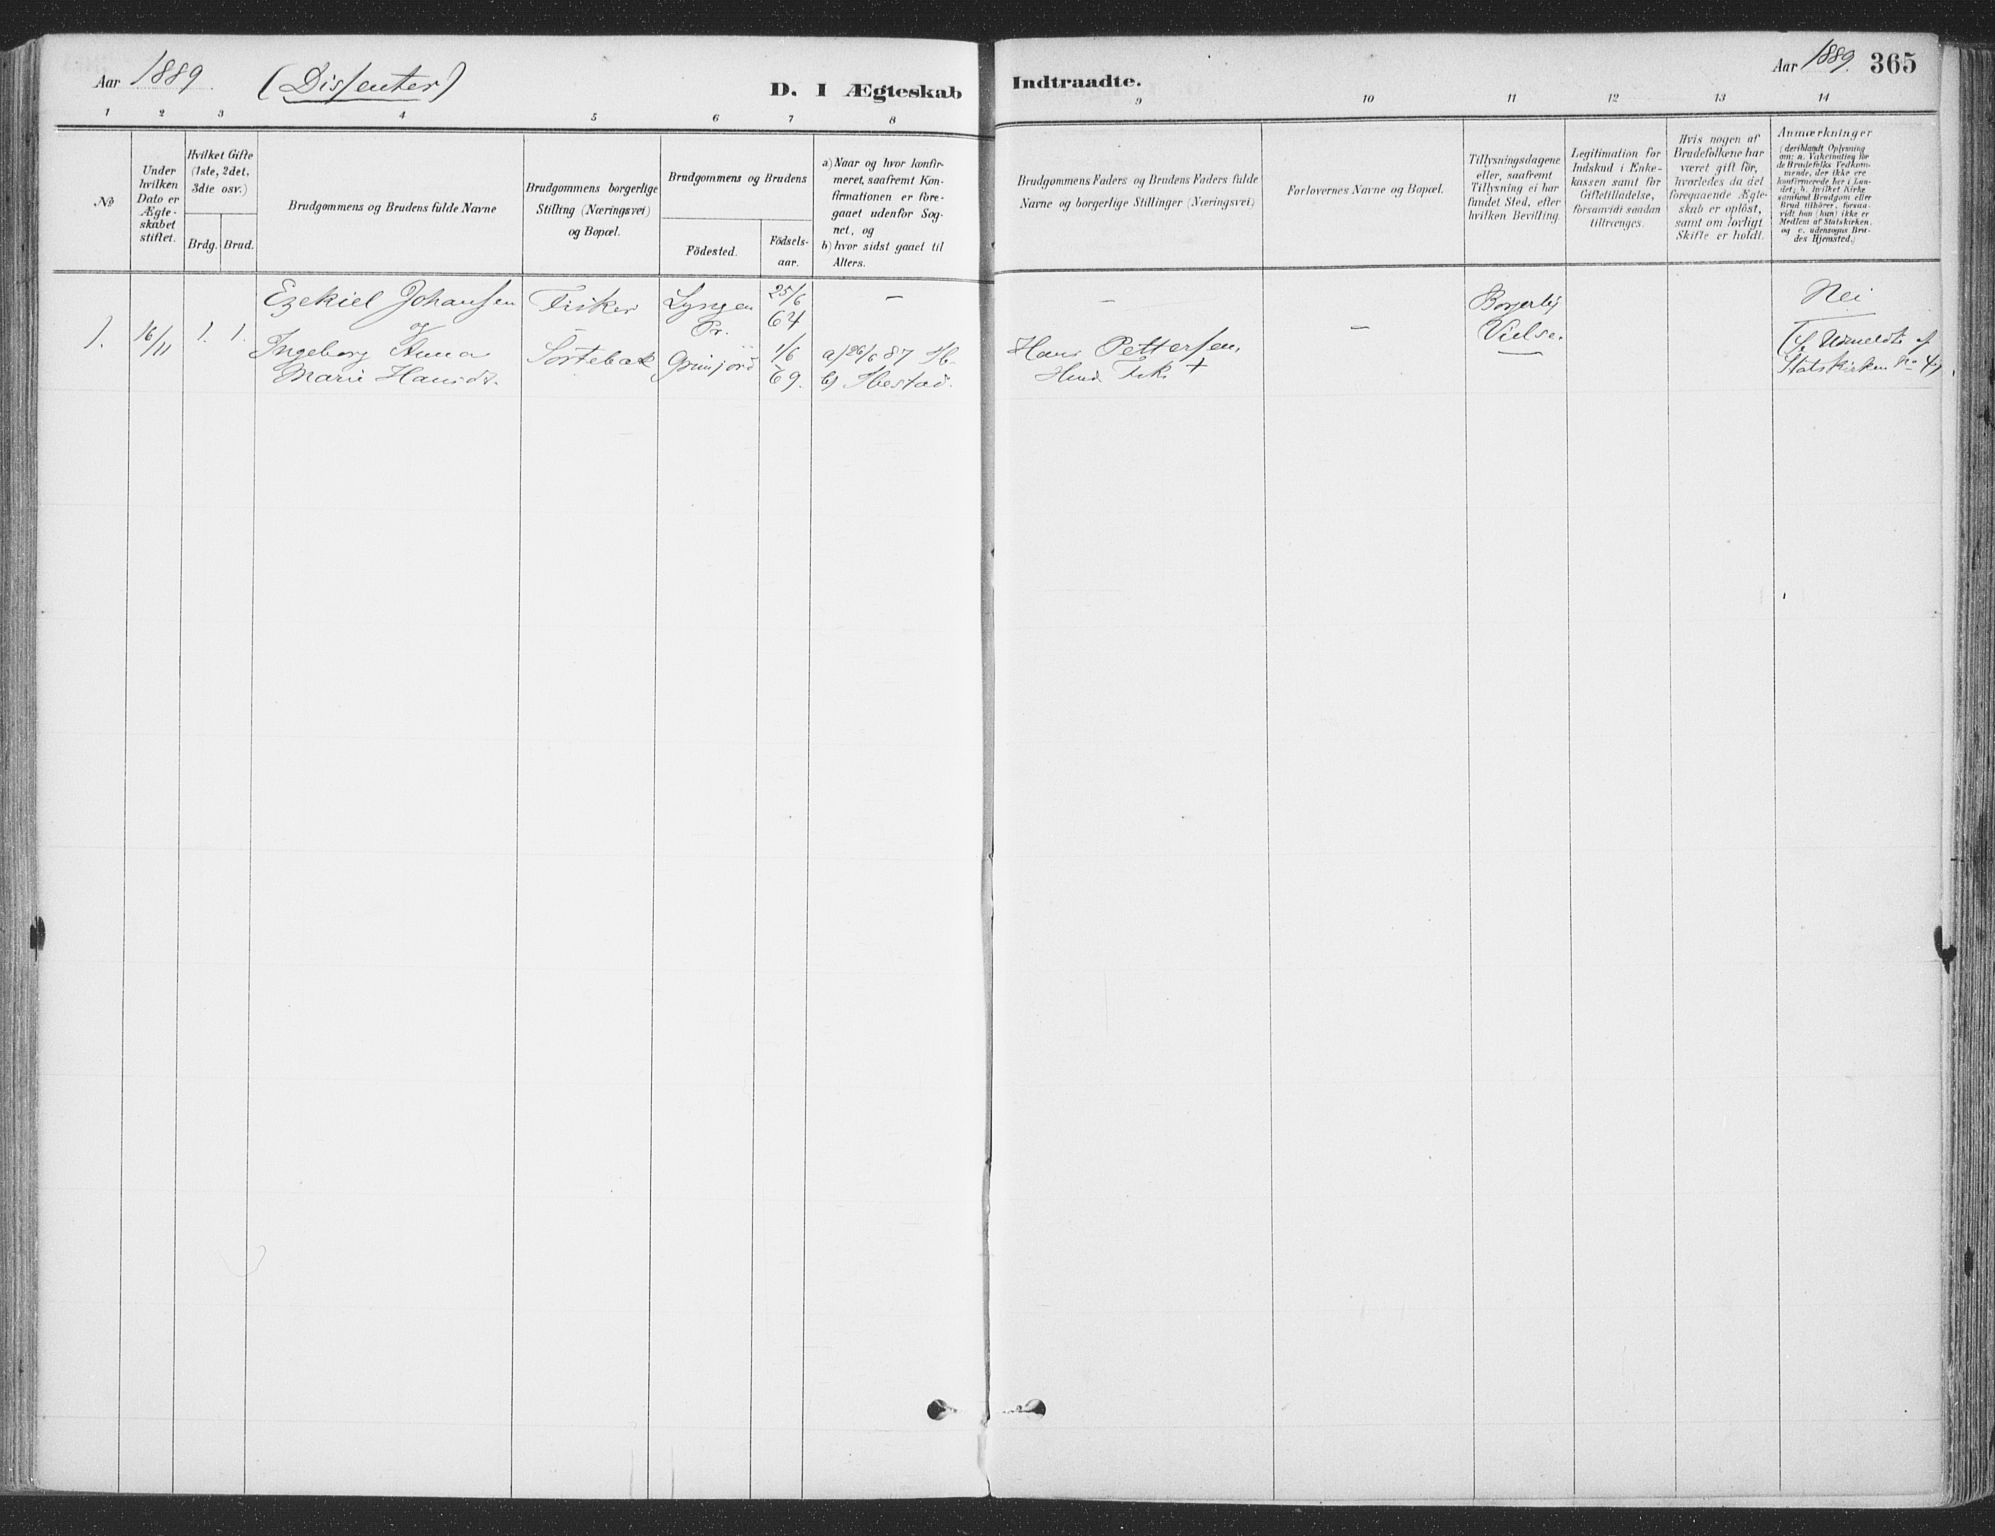 Aar 1889. (Dissenter) D. I Ægteskab Indtraadte. Aar 1889. 365
1 2 3 4 5 6 7 8 9 10 11 12 13 14
No
Under hvilken Dato er Ægteskabet stiftet.
Hvilket Gifte (1ste, 2det, 3die osv.)
Brdg. Brud.
Brudgommens og Brudens fulde Navne
Brudgommens borgerlige Stilling (Næringsvei) og Bopæl.
Brudgommens og Brudens
Födested.
Födsels-aar.
a) Naar og hvor konfirmeret, saafremt Konfirmationen er foregaaet udenfor Sognet, og
b) hvor sidst gaaet til Alters.
Brudgommens Faders og Brudens Faders fulde Navne og borgerlige Stillinger (Næringsvei)
Forlovernes Navne og Bopæl.
Tillysningsdagene eller, saafremt Tillysning ei har fundet Sted, efter hvilken Bevilling.
Legitimation for Indskud i Enkekassen samt for Giftetilladelse, forsaavidt saadan tiltrænges.
Hvis nogen af Brudefolkene har været gift för, hvorledes da det foregaaende Ægteskab er oplöst, samt om lovligt Skifte er holdt.
Anmærkninger
(deriblandt Oplysning om: a. Vakcination for de Brudefolks Vedkommende, der ikke ere konfirmerede her i Landet; b. hvilket Kirkesamfund Brudgom eller Brud tilhörer, forsaavidt han (hun) ikke er Medlem af Statskirken, og c. udensogns Brudes Hjemsted.)
1. 16/11 1. 1.
Ezekiel Johansen
og
Ingeborg Anna
Marie Hansdt.
Fisker
Sörtebæk
Lyngen
Pr.
Grimjord
25/6
64
1/6
69.
—
a) 26/6 87 Ib.
b) Ibestad.
—
Hans Pettersen,
Fisk +
—
Borgerlig
Vielse.
Nei
Udmeldte af
Statskirken No 4,